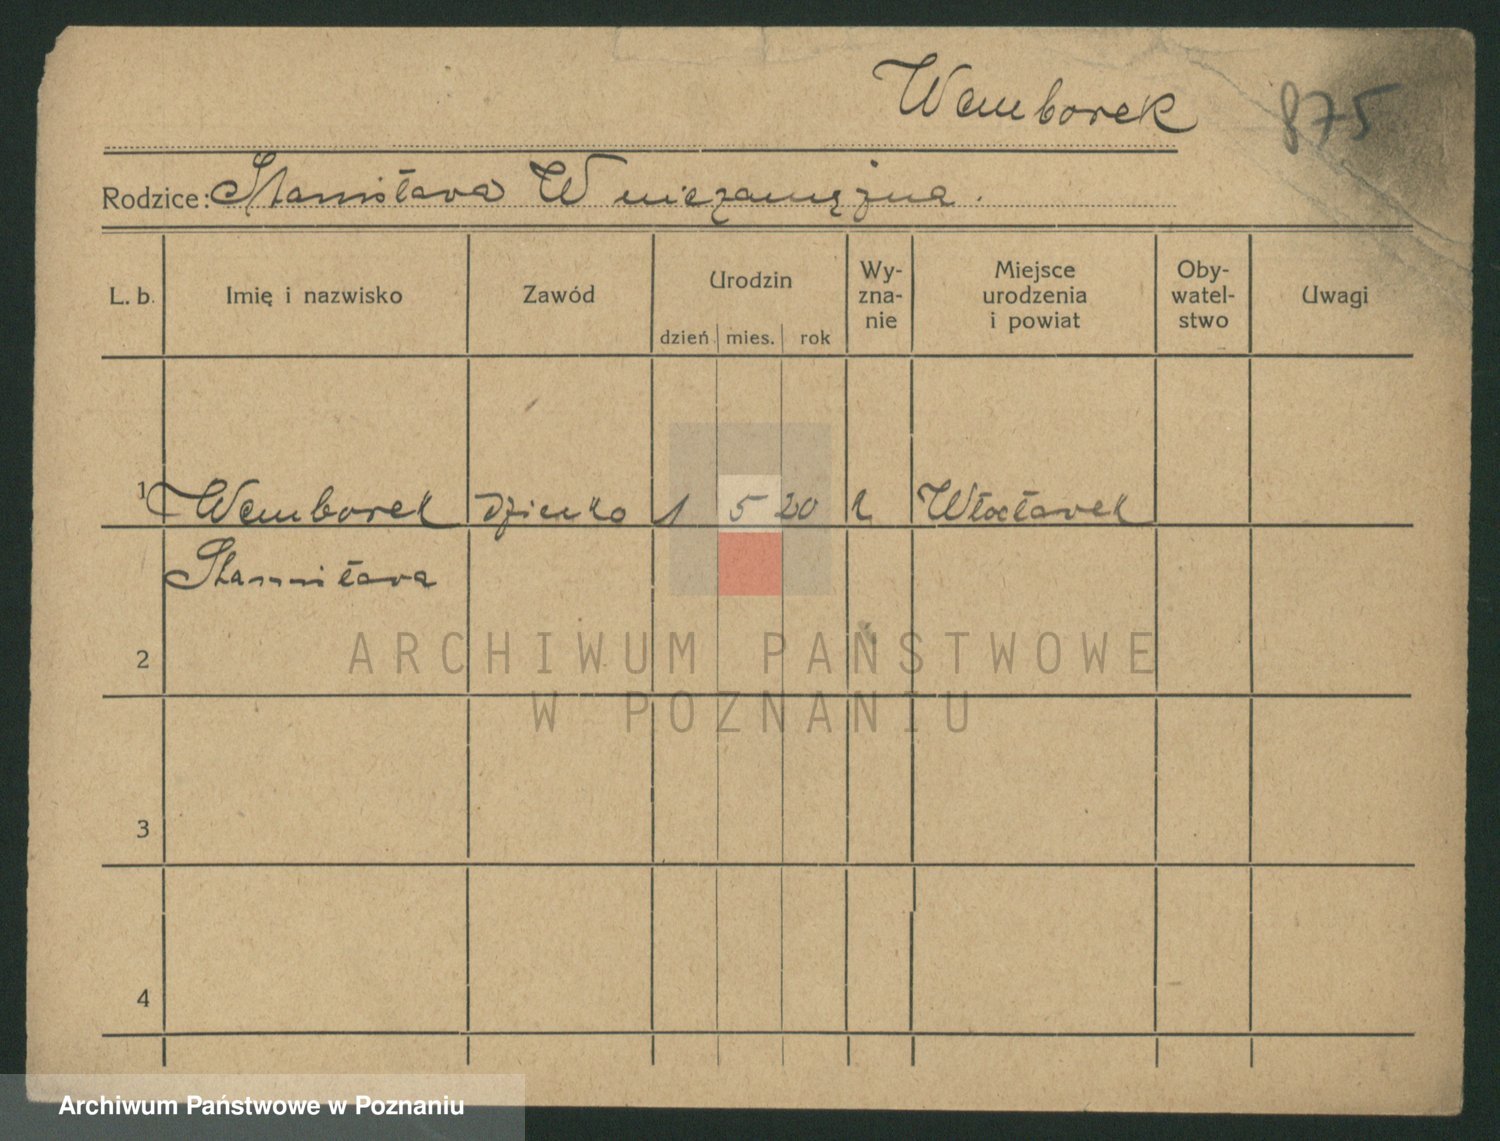 Wemborek
875
Rodzice: Stanisława W niezamężna.
L. b. Imię i nazwisko Zawód Urodzin Wy-zna-nie Miejsce urodzenia i powiat Oby-watel-stwo Uwagi
dzień mies. rok
1 Wemborek dziecko 1 5 20 k Włocławek
Stanisława
2
3
4
ARCHIWUM PAŃSTWOWE
W POZNANIU
Archiwum Państwowe w Poznaniu